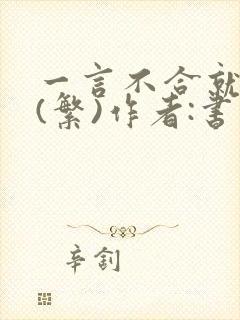 一言不合就
(繁)作者:書
辛釗